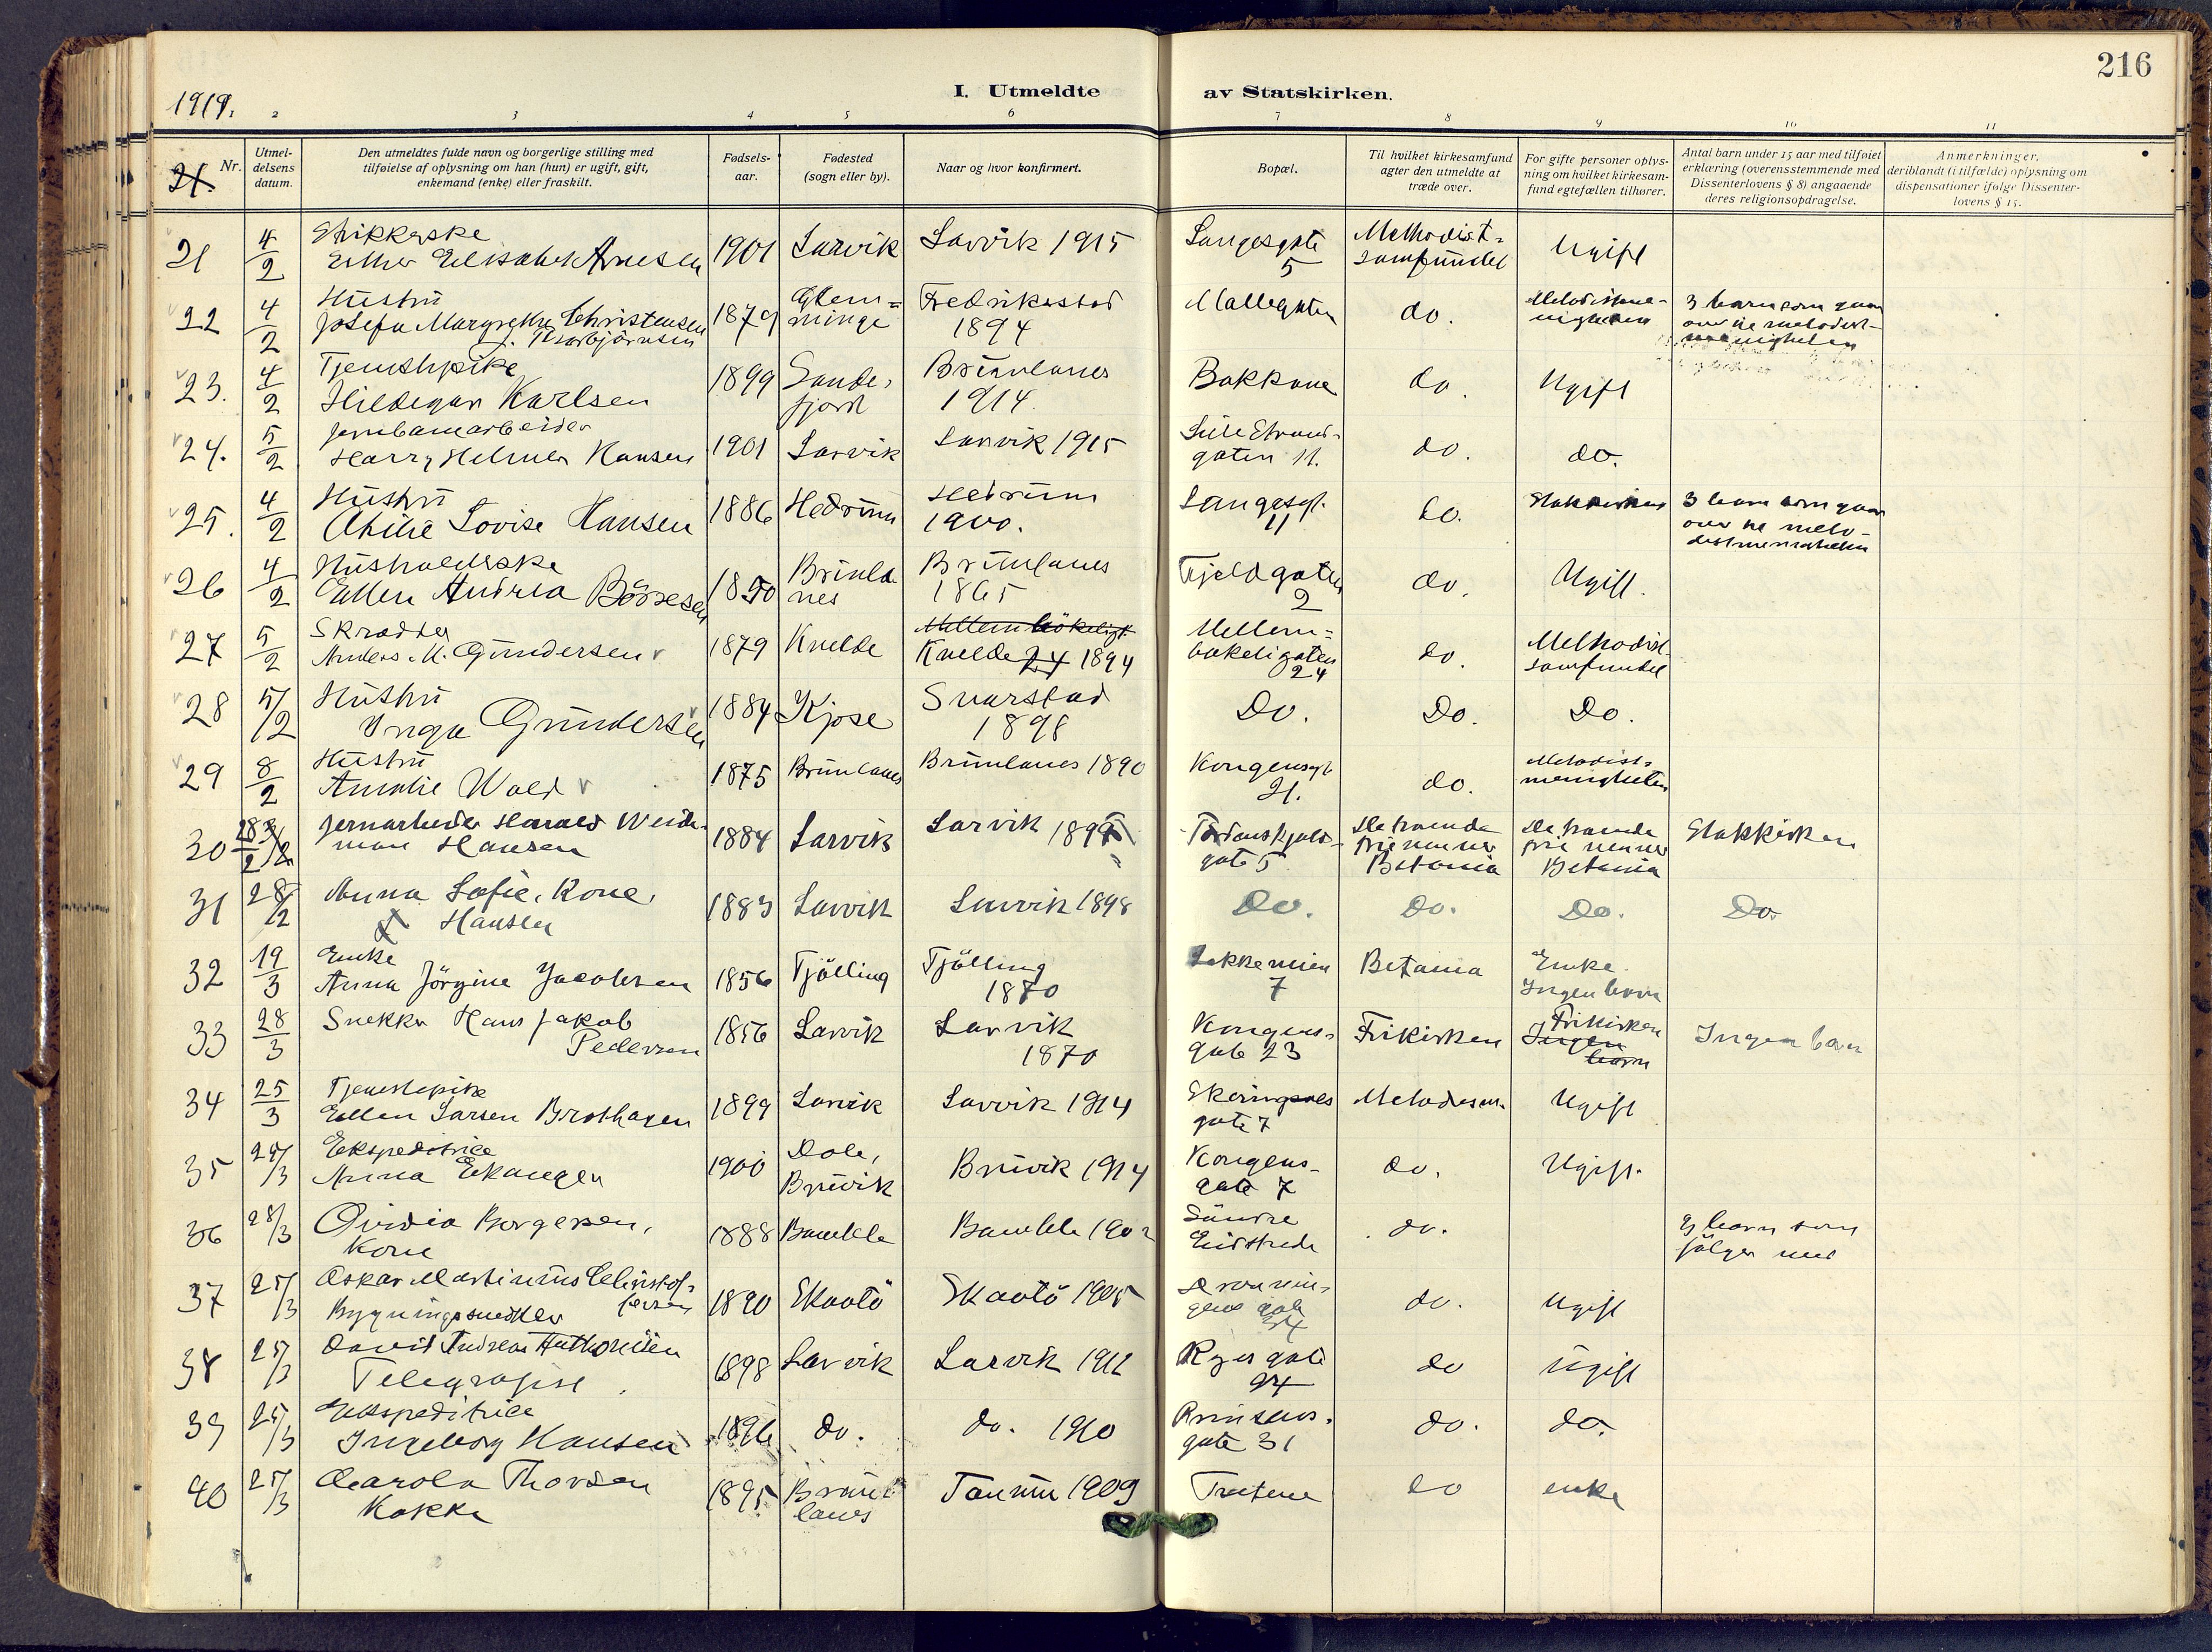 216
I. Utmeldte av Statskirken.
1919.
2 3 4 5 6 7 8 9 10 11
Nr.
21.
Utmel-
delsens
datum.
Den utmeldtes fulde navn og borgerlige stilling med
tilføielse af oplysning om han (hun) er ugift, gift,
enkemand (enke) eller fraskilt.
Fødsels-
aar.
Fødested
(sogn eller by).
Naar og hvor konfirmert.
Bopæl.
Til hvilket kirkesamfund
agter den utmeldte at
træde over.
For gifte personer oplys-
ning om hvilket kirkesam-
fund egtefællen tilhører.
Antal barn under 15 aar med tilføiet
erklæring (overensstemmende med
Dissenterlovens § 8) angaaende
deres religionsopdragelse.
Anmerkninger,
deriblandt (i tilfælde) oplysning om
dispensationer ifølge Dissenter-
lovens § 15.
21 4/2 Strikkerske
Esther Elisabeth Arnesen 1901 Larvik Larvik 1915 Langesgate
5 Methodist-
samfundet Ugift
22 4/2 Hustru
Josefa Margrethe Christensen
f. Thorbjørnsen 1879 Glem=
minge Fredrikstad
1894 Møllegaten do. Metodistme-
nigheten 3 barn som gaar
over til metodist-
menigheten
23. 4/2 Tjenestepike
Hildegar Karlsen 1899 Sande-
fjord Brunlanes
1914. Bakkane do. Ugift
24. 5/2 Jernbanearbeider
Harry Helmer Hansen 1901 Larvik Larvik 1915 Lille Strand-
gaten 11. do. do.
25. 4/2 Hustru
Othilie Lovise Hansen 1886 Hedrum Hedrum
1900. Langesgt.
11 do. Statskirken 3 barn som gaar
over til meto-
distmenigheten
26 4/2 Husholderske
Ellen Andrea Børresen 1850 Brunla
nes Brunlanes
1865 Fjeldgaten
2 do. Ugift.
27 5/2 Skrædder
Anders M. Gundersen 1879 Kvelde Mellem bökeligt.
Kvelde 24 1894 Mellem=
bökeligaten
24 do. Methodist-
samfundet
28 5/2 Hustru
Inga Gundersen 1884 Kjose Svarstad
1898 Do. Do. Do.
29 8/2 Hustru
Amalie Wold 1875 Brunlanes Brunlanes 1890 Kongensgt
21. do. Metodist-
menigheten
30 28/2 Jernarbeider Harald Weide-
man Hansen 1884 Larvik Larvik 1899 Tordenskjolds-
gate 5 De troende
frie venner
Betania De troende
frie venner
Betania Statskirken
31 28/2 Anna Sofie, Kone,
Hansen 1883 Larvik Larvik 1898 Do. Do. Do. Do.
32 19/3 Enke
Anna Jörgine Jacobsen 1856 Tjölling Tjölling
1870 Løkkeveien
7 Betania Enke.
Ingen barn
33 28/3 Snekker Hans Jakob
Pedersen 1856 Larvik Larvik
1870 Kongens-
gate 23 Frikirken Frikirken
Ingen
barn Ingen barn
34 25/3 Tjenestepike
Ellen Larsen Brathagen 1899 Larvik Larvik 1914 Skeringsals
gate 7 Metodism. Ugift
35 25/3 Ekspeditrice
Anna Eikanger 1900 Dale,
Bruvik Bruvik 1914 Kongens-
gate 7 do. Ugift.
36 28/3 Ovidia Borgersen,
Kone 1888 Bamble Bamble 1902 Søndre
do. 2 barn som
følger med
37 25/3 Oskar Martinius Christof-
fersen
Bygningssnedker 1890 Skaatö Skaatö 1905 Dronnin-
gens gate
34 do. Ugift
38 25/3 David Andreas Anthonisen
Telegrafist. 1898 Larvik Larvik 1912 Ryes gate
24 do Ugift
39 25/3 Ekspeditrice
Ingeborg Hansen 1896 do. do. 1910 Prinsens-
gate 31 do. do.
40 25/3 Carola Thorsen
Kokke 1895 Brun-
lanes Tanum 1909 Tretene do enke